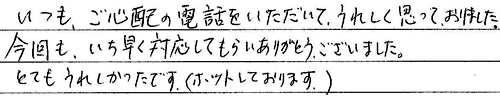 いつも、ご心配の電話をいただいて、うれしく思って、おりました。
今回も、いち早く対応してもらいありがとうございました。
とてもうれしかったです。(ホットしております。)